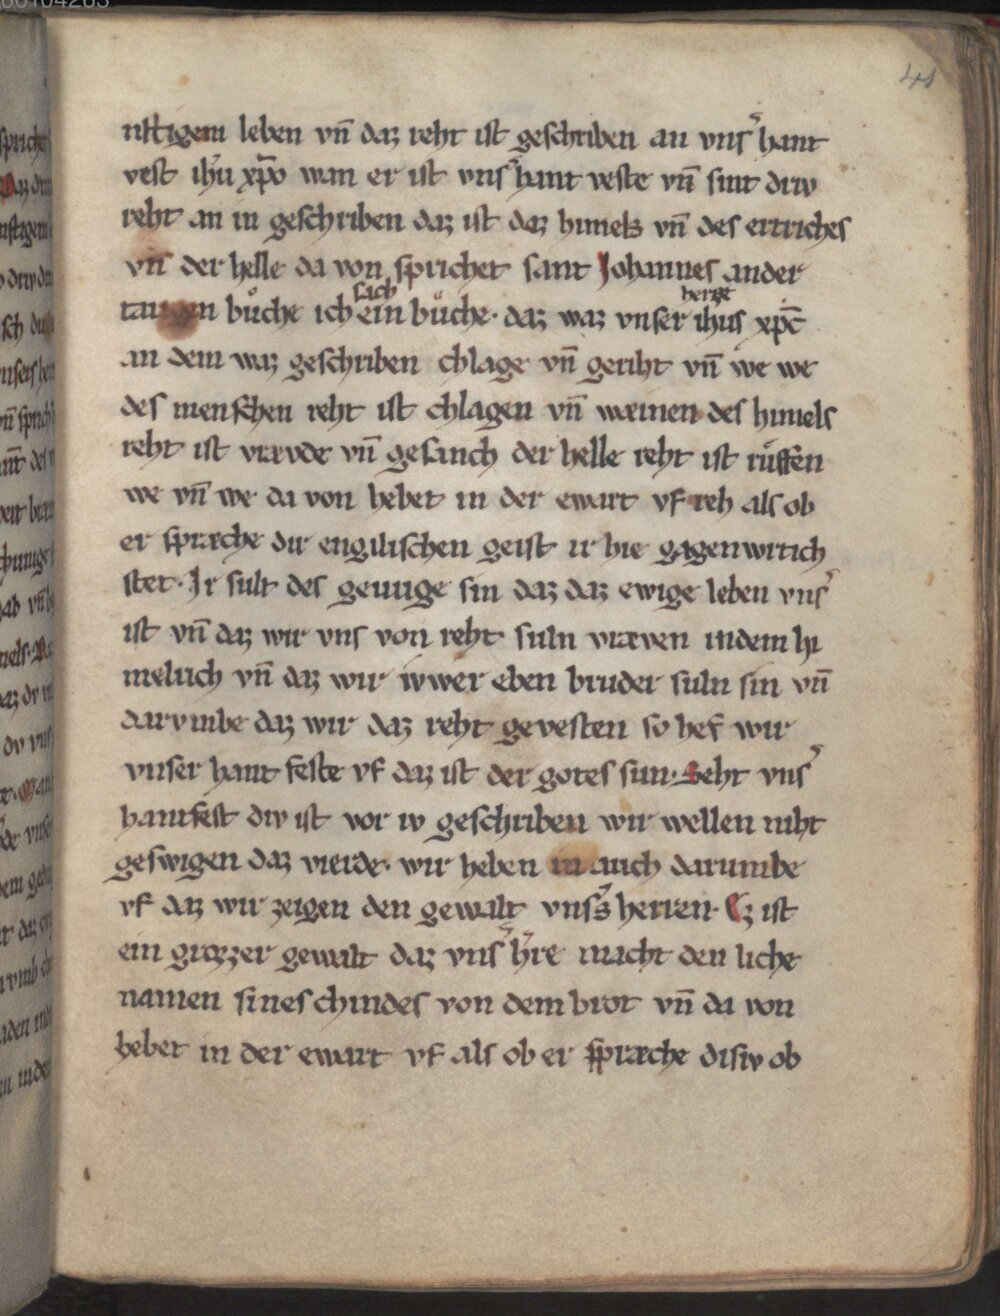 41
nftigem leben vn̄ daz reht ist geschriben an vnsˀ hant
vest ihˀu xp̄o wan er ist vnsˀ hant veste vn̄ sint driv
reht an in geschriben daz ist dez himels vn̄ des ertriches
vn̄ der helle da von sprichet sant Johannes an der
sach herre
taugen bůche ich ein bůche· daz waz vnser ihus xp̄c
an dem waz geschriben chlage vn̄ geriht vn̄ we we
des menschen reht ist chlagen vn̄ wæinen des himels
reht ist vrævde vn̄ gesanch der helle reht ist růffen
we vn̄ we da von hebet in der ewart vf reh als ob
er spræche dir engilischen geist ir hie gagenwrtich
stet· Ir sult des geziuge sin daz daz ewige leben vnsˀ
ist vn̄ daz wir vns von reht suln vræven in dem hi
melrich vn̄ daz wir iwwer eben bruder suln sin vn̄
darvmbe daz wir daz reht gevesten so hef wir
vnser hant feste vf daz ist der gotes sun· Seht vnsˀ
hantfest div ist vor iv geschriben wir wellen niht
geswigen daz vierde· wir heben in auch darumbe
vf daz wir zeigen den gewalt vnsˀs herren· Ez ist
ein grozzer gewalt daz vnsˀ hˀre macht den liche
namen sines chindes von dem brot vn̄ da von
hebet in der ewart vf als ob er spræche disiv ob